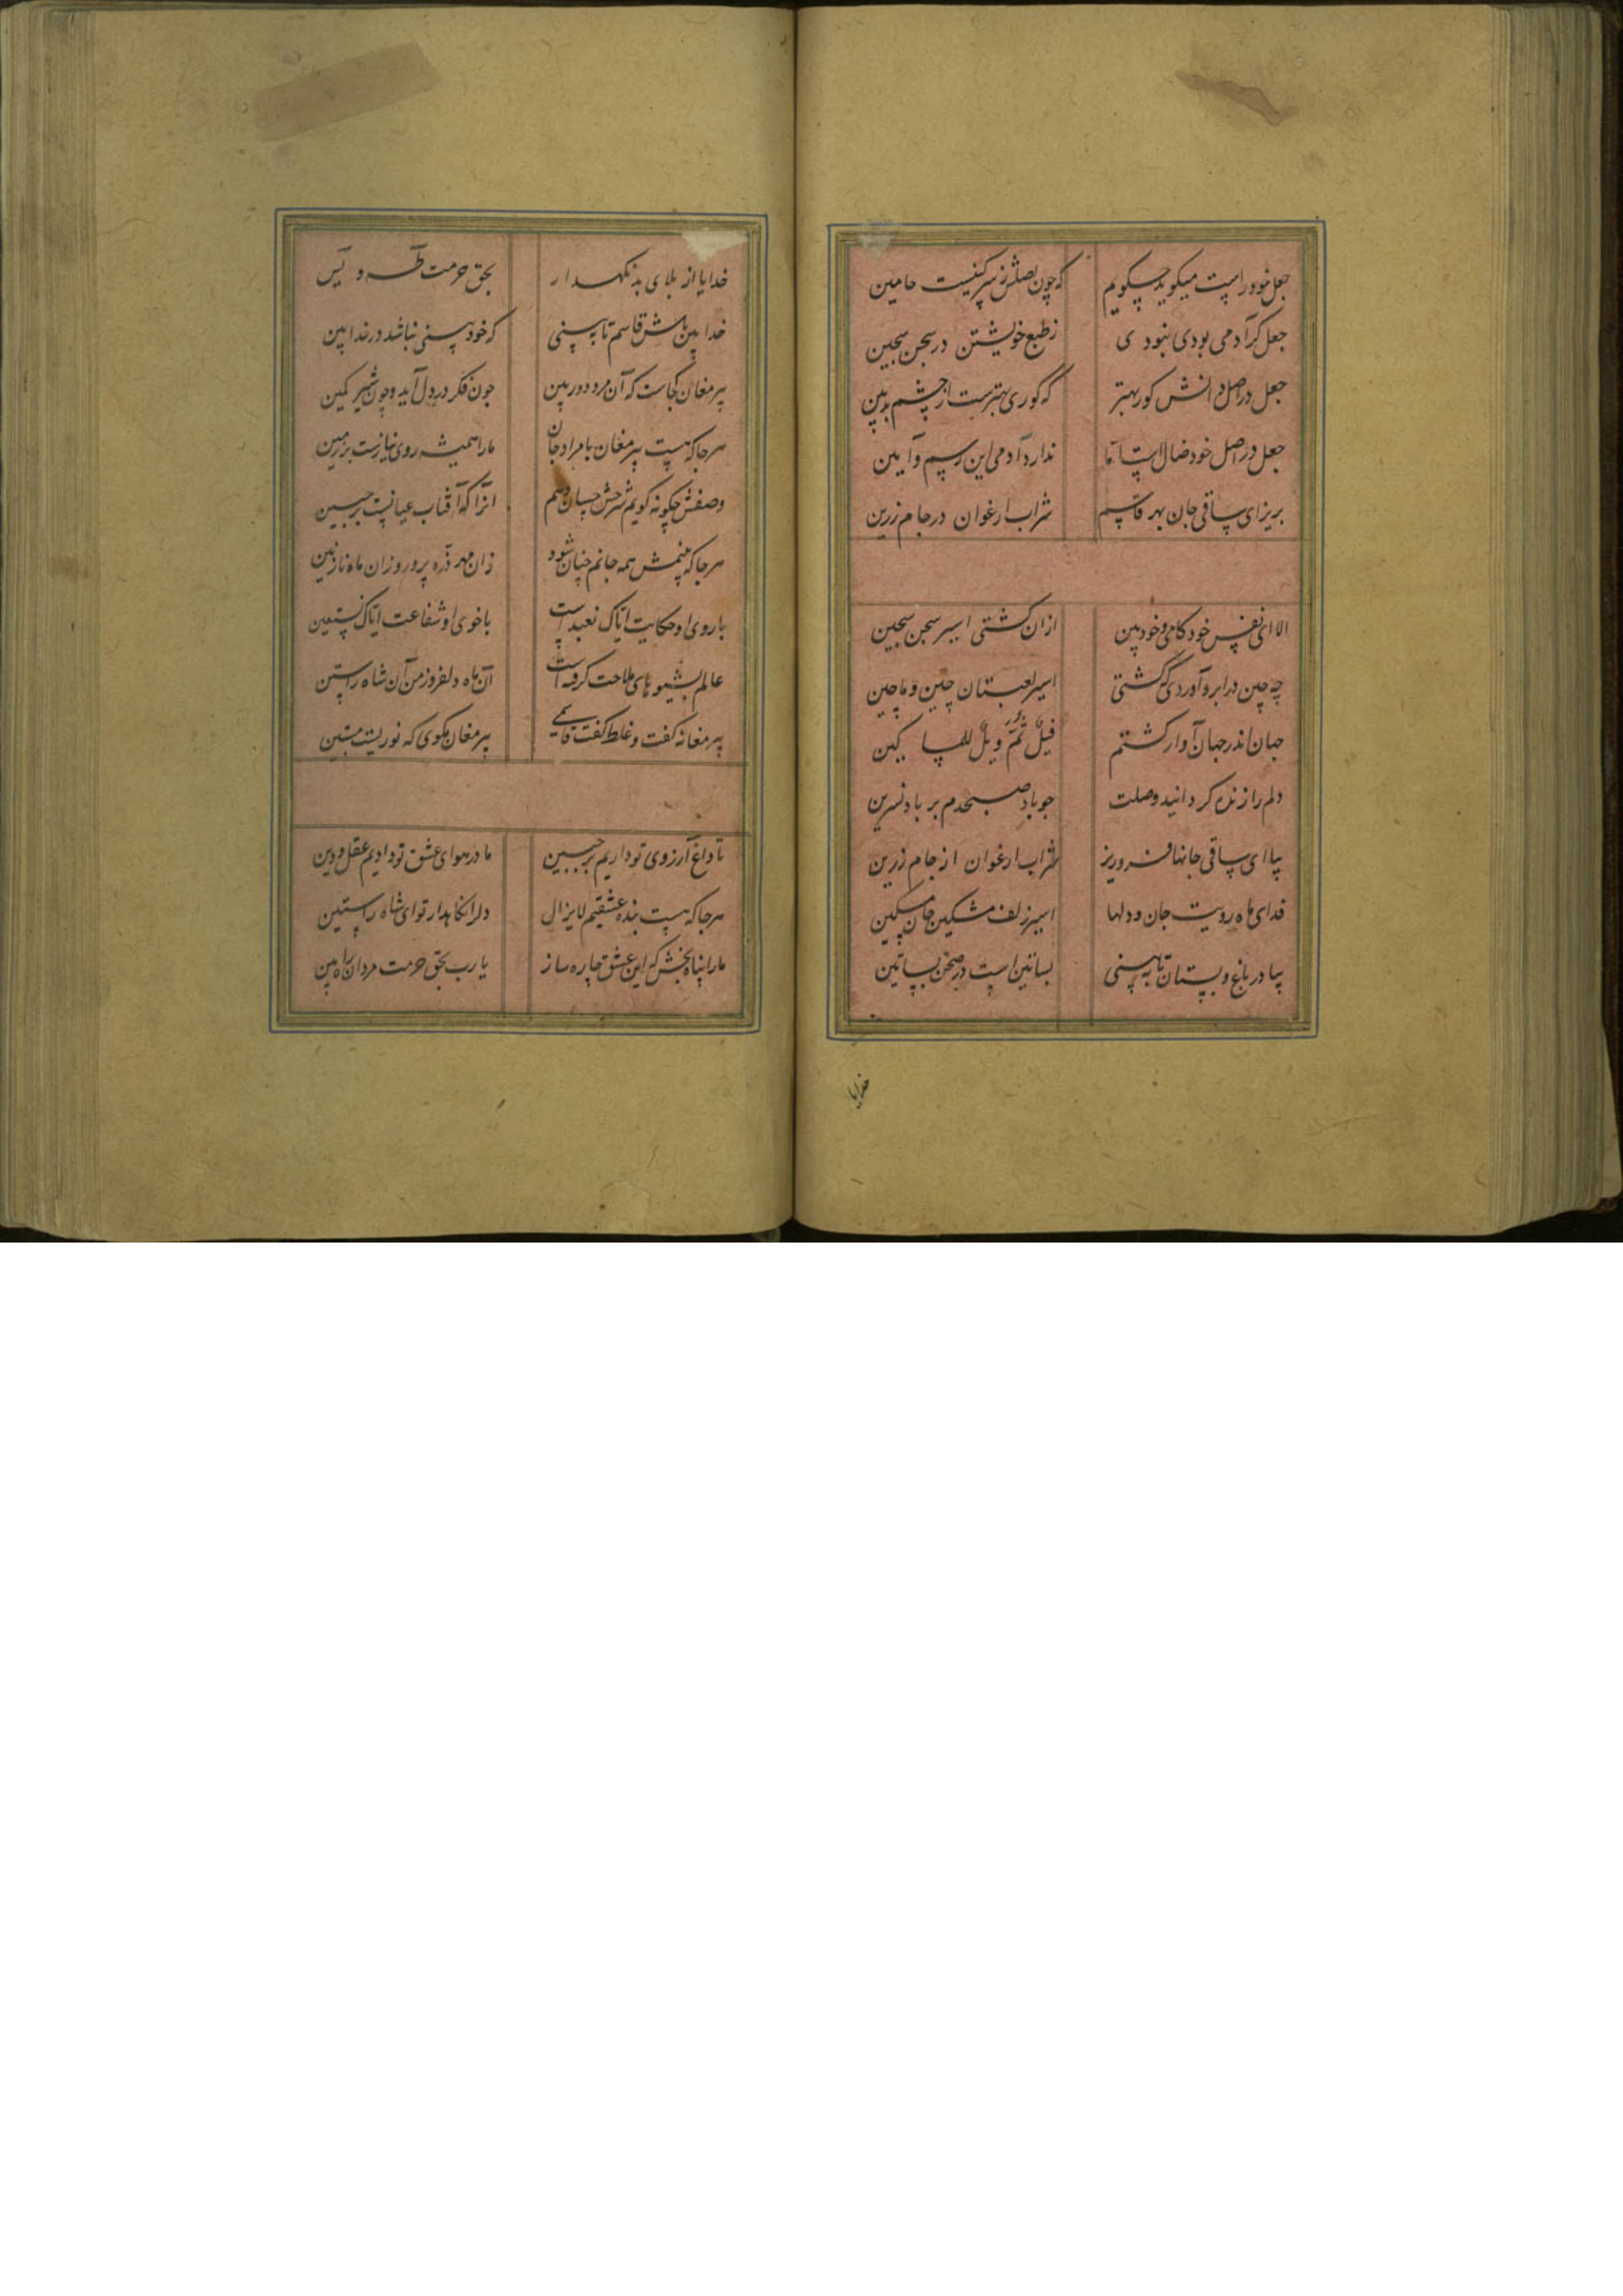 جعل خود راست میکوید چکویم که چون اصلش ز سرکینست حامین
جعل کر آدمی بودی نبودی ز طبع خویشتن در سجن سجین
جعل در اصل دانش کور بهتر که کوری بهترست از چشم بدبین
جعل در اصل خود ضال است اما ندارد آدمی این رسم و آیین
بریز ای ساقی جان بهر قاسم شراب ارغوان در جام زرین
الا ای نفس خودکامی و خودبین ازان کشتی اسیر سجن سجین
چه چین در ابرو آوردی که کشتی اسیر لعبتان چین و ماچین
جهان اندر جهان آواره کشتم فیل ثم ویل للمساکین
دلم را زنده کردانید وصلت چو باد صبحدم بر باد نسرین
بیا ای ساقی جانها فرو ریز شراب ارغوان از جام زرین
فدای ماه رویت جان و دلها اسیر زلف مشکین جان مسکین
بیا در باغ و بستان تا ببینی بساتین است در صحن بساتین
خدایا
خدایا از بلای بد نکهدار بحق حرمت طه و یس
خدا بین باش قاسم تا ببینی که خودبینی نباشد در خدابین
پیر مغان کجاست که آن مرد دوربین چون فکر در دل آید و چون شیر کمین
هرجا که هست پیر مغان با مراد جان ما را همیشه روی نیازست بر زمین
وصفش چکونه کویم شرحش چسان دهم انرا که آفتاب عیانست بر جبین
هرجا که بینمش همه جانم چنان شود زان مهر ذره پرور وزان ماه نازنین
با روی او حکایت ایاک نعبد است با خوی او شفاعت ایاک نستعین
عالم بشیوهای ملاحت کرفته است آن ماه دلفروز من آن شاه راستین
پیر مغانه کفت و غلط کفت قاسمی پیر مغان مکوی که نوریست مستبین
تا داغ آرزوی تو داریم بر جبین ما در هوای عشق تو دادیم عقل و دین
هرجا که هست بنده عشقیم لایزال دلرا نکاهدار تو ای شاه راستین
ما را پناه بخش که این عشق چاره ساز یا رب بحق حرمت مردان راه بین